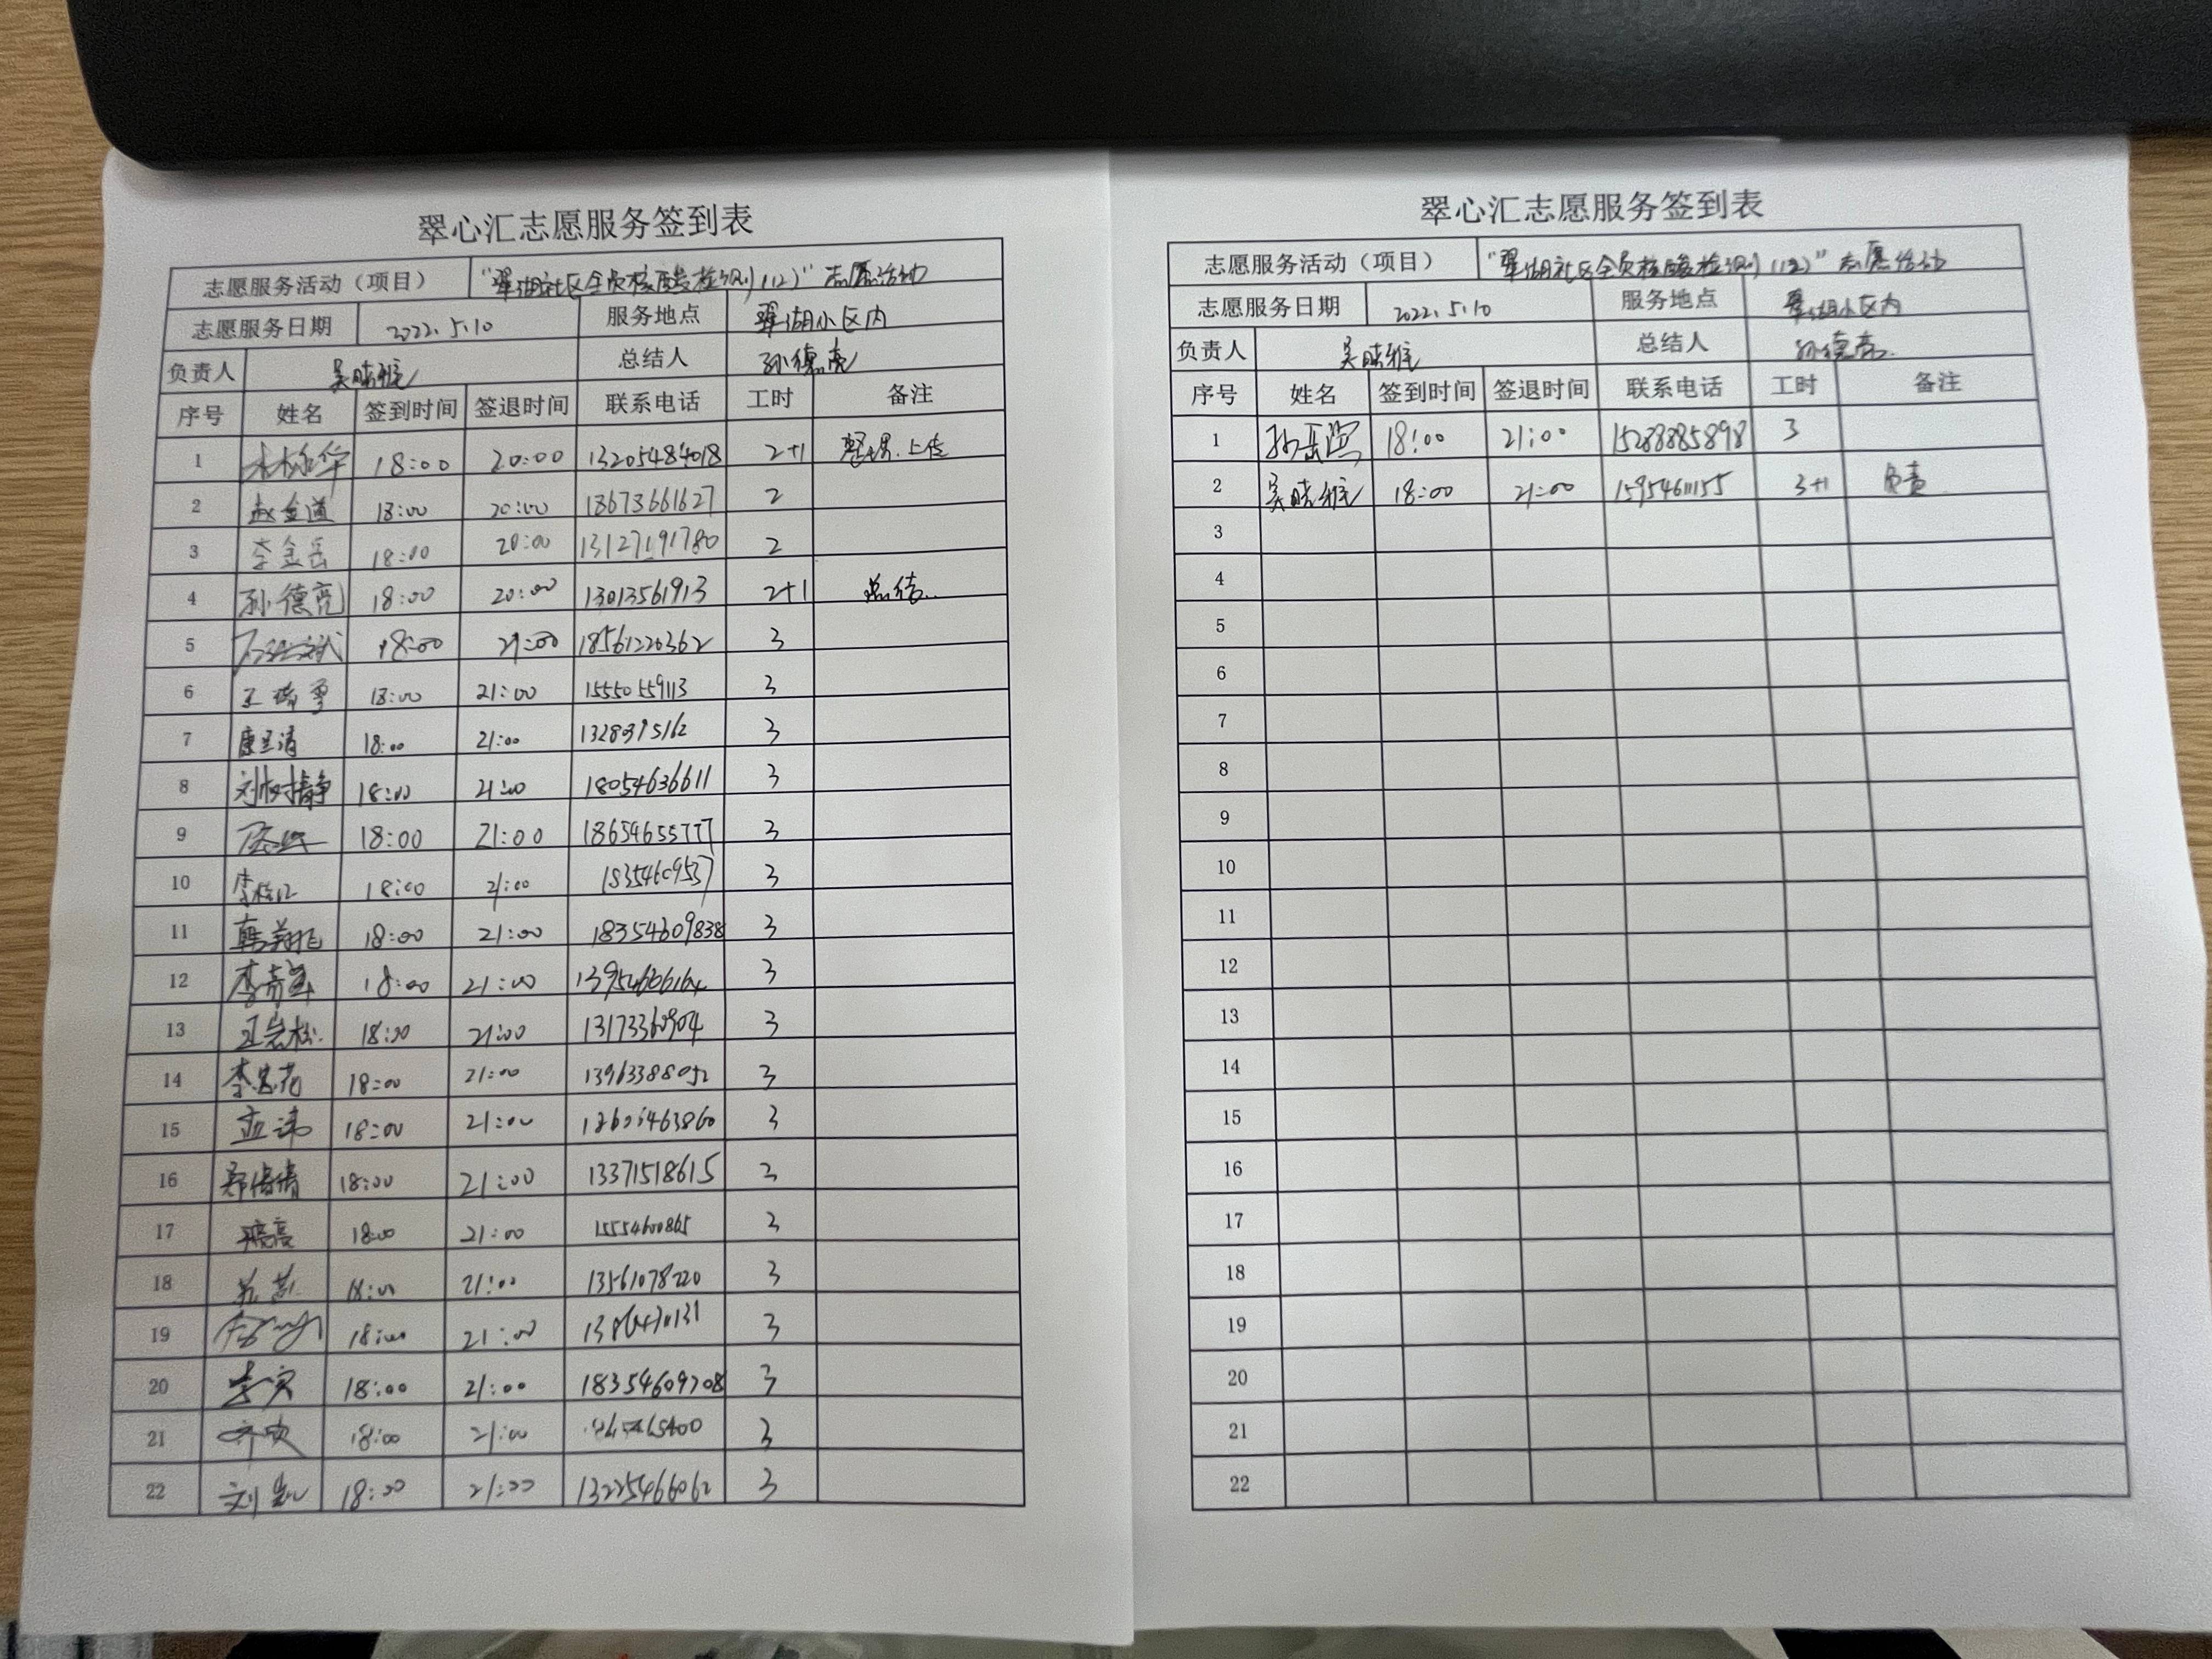 翠心汇志愿服务签到表
志愿服务活动（项目） "翠湖社区全员核酸检测(12)"志愿活动
志愿服务日期 2022.5.10 服务地点 翠湖小区内
负责人 吴晓雅 总结人 孙德亮
序号 姓名 签到时间 签退时间 联系电话 工时 备注
1 18:00 20:00 13205484018 2+1 上传
2 赵金道 18:00 20:00 13673661627 2
3 李金岳 18:00 20:00 13127191780 2
4 孙德亮 18:00 20:00 13013561913 2+1 总结.
5 18:00 21:00 18561220362 3
6 18:00 21:00 15550559113 3
7 18:00 21:00 3
8 刘树静 18:00 21:00 18054636611 3
9 18:00 21:00 18654655777 3
10 18:00 21:00 18354609537 3
11 韩翔飞 18:00 21:00 18354609838 3
12 18:00 21:00 3
13 王岩松 18:00 21:00 13173360904 3
14 18:00 21:00 13963388052 3
15 18:00 21:00 3
16 郑倩倩 18:00 21:00 13371518615 3
17 18:00 21:00 3
18 18:00 21:00 13561078220 3
19 18:00 21:00 3
20 18:00 21:00 3
21 18:00 21:00 3
22 18:00 21:00 13225466062 3
翠心汇志愿服务签到表
志愿服务活动（项目） "翠湖社区全员核酸检测(12)"志愿活动
志愿服务日期 2022.5.10 服务地点 翠湖小区内
负责人 吴晓雅 总结人 孙德亮
序号 姓名 签到时间 签退时间 联系电话 工时 备注
1 18:00 21:00 15288885898 3
2 吴晓雅 18:00 21:00 15954611155 3+1 负责
3
4
5
6
7
8
9
10
11
12
13
14
15
16
17
18
19
20
21
22